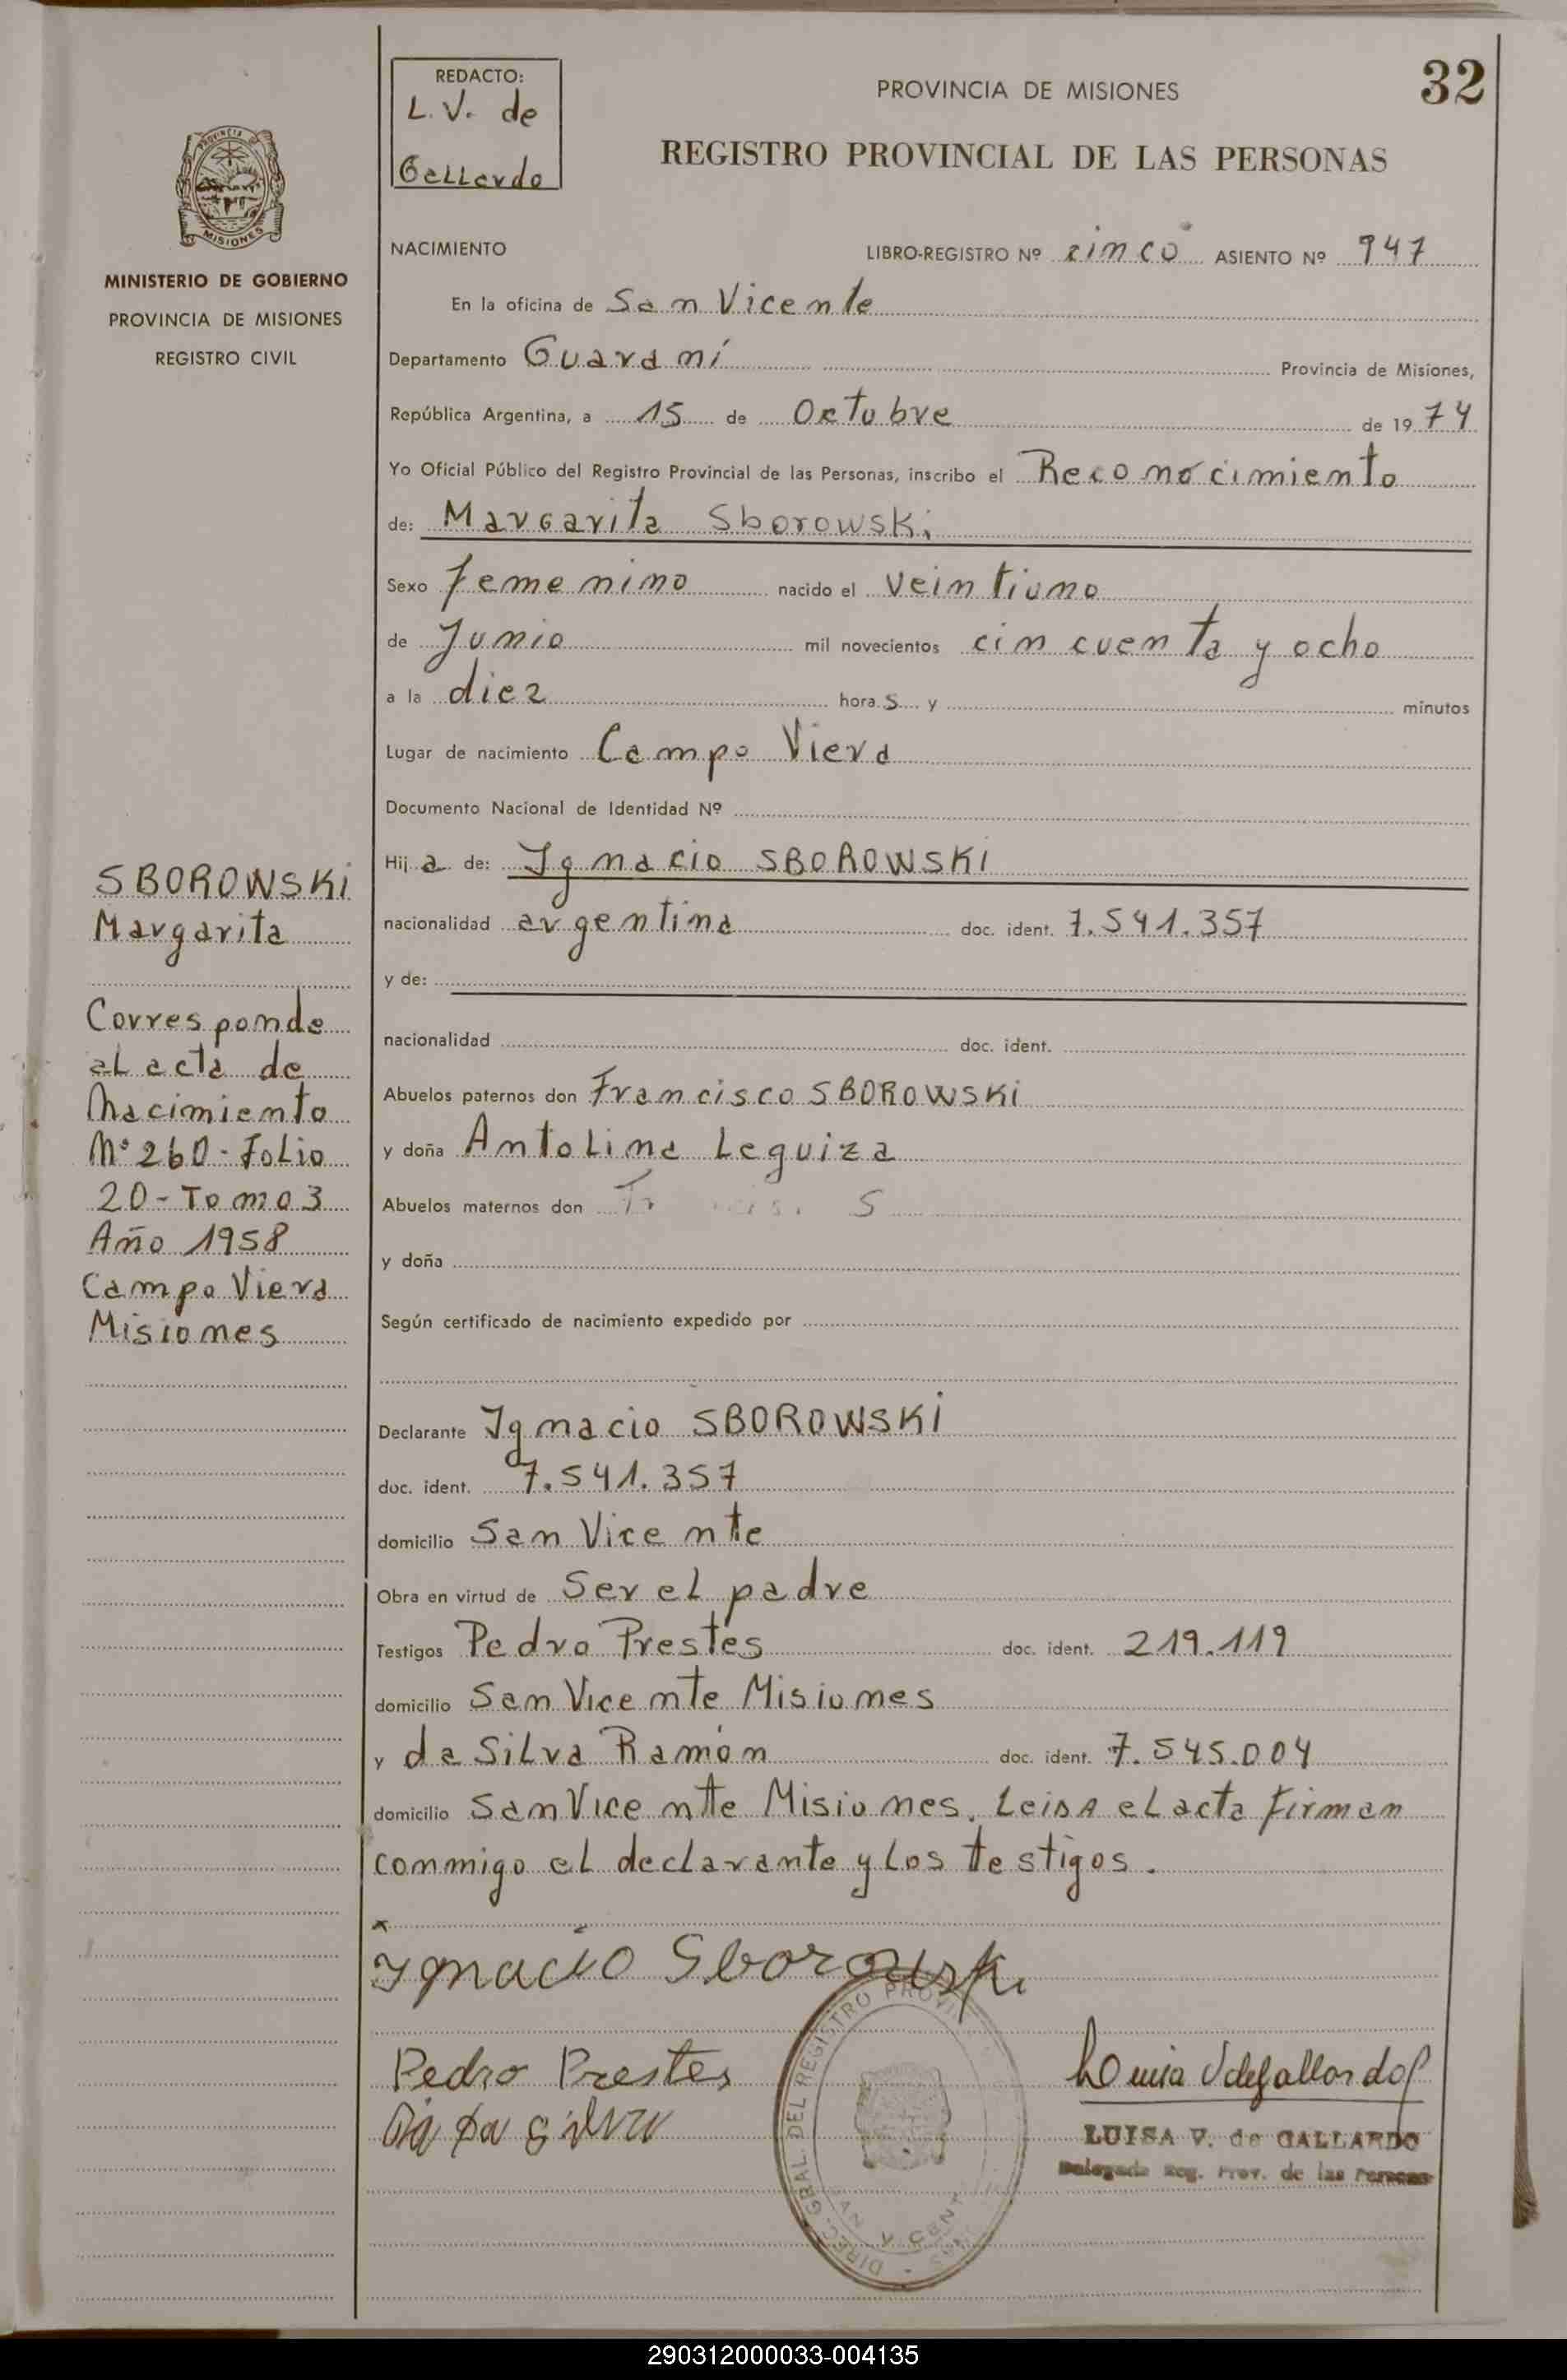 32
REDACTO:
L. V. de
Gallardo
PROVINCIA DE MISIONES
REGISTRO PROVINCIAL DE LAS PERSONAS
PROVINCIA DE
MISIONES
MINISTERIO DE GOBIERNO
PROVINCIA DE MISIONES
REGISTRO CIVIL
NACIMIENTO LIBRO-REGISTRO Nº cinco ASIENTO Nº 947
En la oficina de San Vicente
Departamento Guaraní Provincia de Misiones,
República Argentina, a 15 de Octubre de 1974
Yo Oficial Público del Registro Provincial de las Personas, inscribo el Reconocimiento
de: Margarita Sborowski
Sexo femenino nacido el veintiuno
de Junio mil novecientos cincuenta y ocho
a la diez hora s y minutos
Lugar de nacimiento Campo Viera
Documento Nacional de Identidad Nº
Hij a de: Ignacio SBOROWSKI
nacionalidad argentina doc. ident. 7.541.357
y de:
nacionalidad doc. ident.
Abuelos paternos don Francisco SBOROWSKI
y doña Antolina Leguiza
Abuelos maternos don
y doña
Según certificado de nacimiento expedido por
Declarante Ignacio SBOROWSKI
doc. ident. 7.541.357
domicilio San Vicente
Obra en virtud de Ser el padre
Testigos Pedro Prestes doc. ident. 219.119
domicilio San Vicente Misiones
y da Silva Ramón doc. ident. 7.545.004
domicilio San Vicente Misiones. Leida el acta firman
conmigo el declarante y los testigos.
SBOROWSKI
Margarita
Corresponde
al acta de
Nacimiento
Nº 260 - Folio
20 - Tomo 3
Año 1958
Campo Viera
Misiones
Ignacio Sborowski
Pedro Prestes
da Silva
LUISA V. de GALLARDO
Delegada Reg. Prov. de las Personas
DIREC. GRAL. DEL REGISTRO PROVIN
290312000033-004135